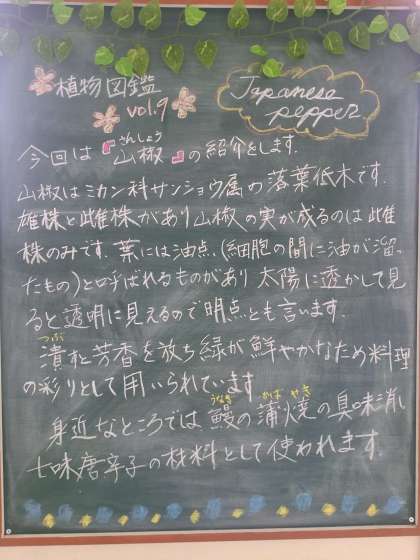 植物図鑑
vol.9
Japanese
pepper
さんしょう
今回は『山椒』の紹介をします.
山椒はミカン科サンショウ属の落葉低木です.
雄株と雌株があり山椒の実が成るのは雌
株のみです. 葉には油点、(細胞の間に油が溜っ
たもの)と呼ばれるものがあり太陽に透かして見
ると透明に見えるので明点とも言います.
つぶ
潰すと芳香を放ち緑が鮮やかなため料理
の彩りとして用いられています
うなぎ かば やき
身近なところでは鰻の蒲焼の臭味消し
七味唐辛子の材料として使われます.